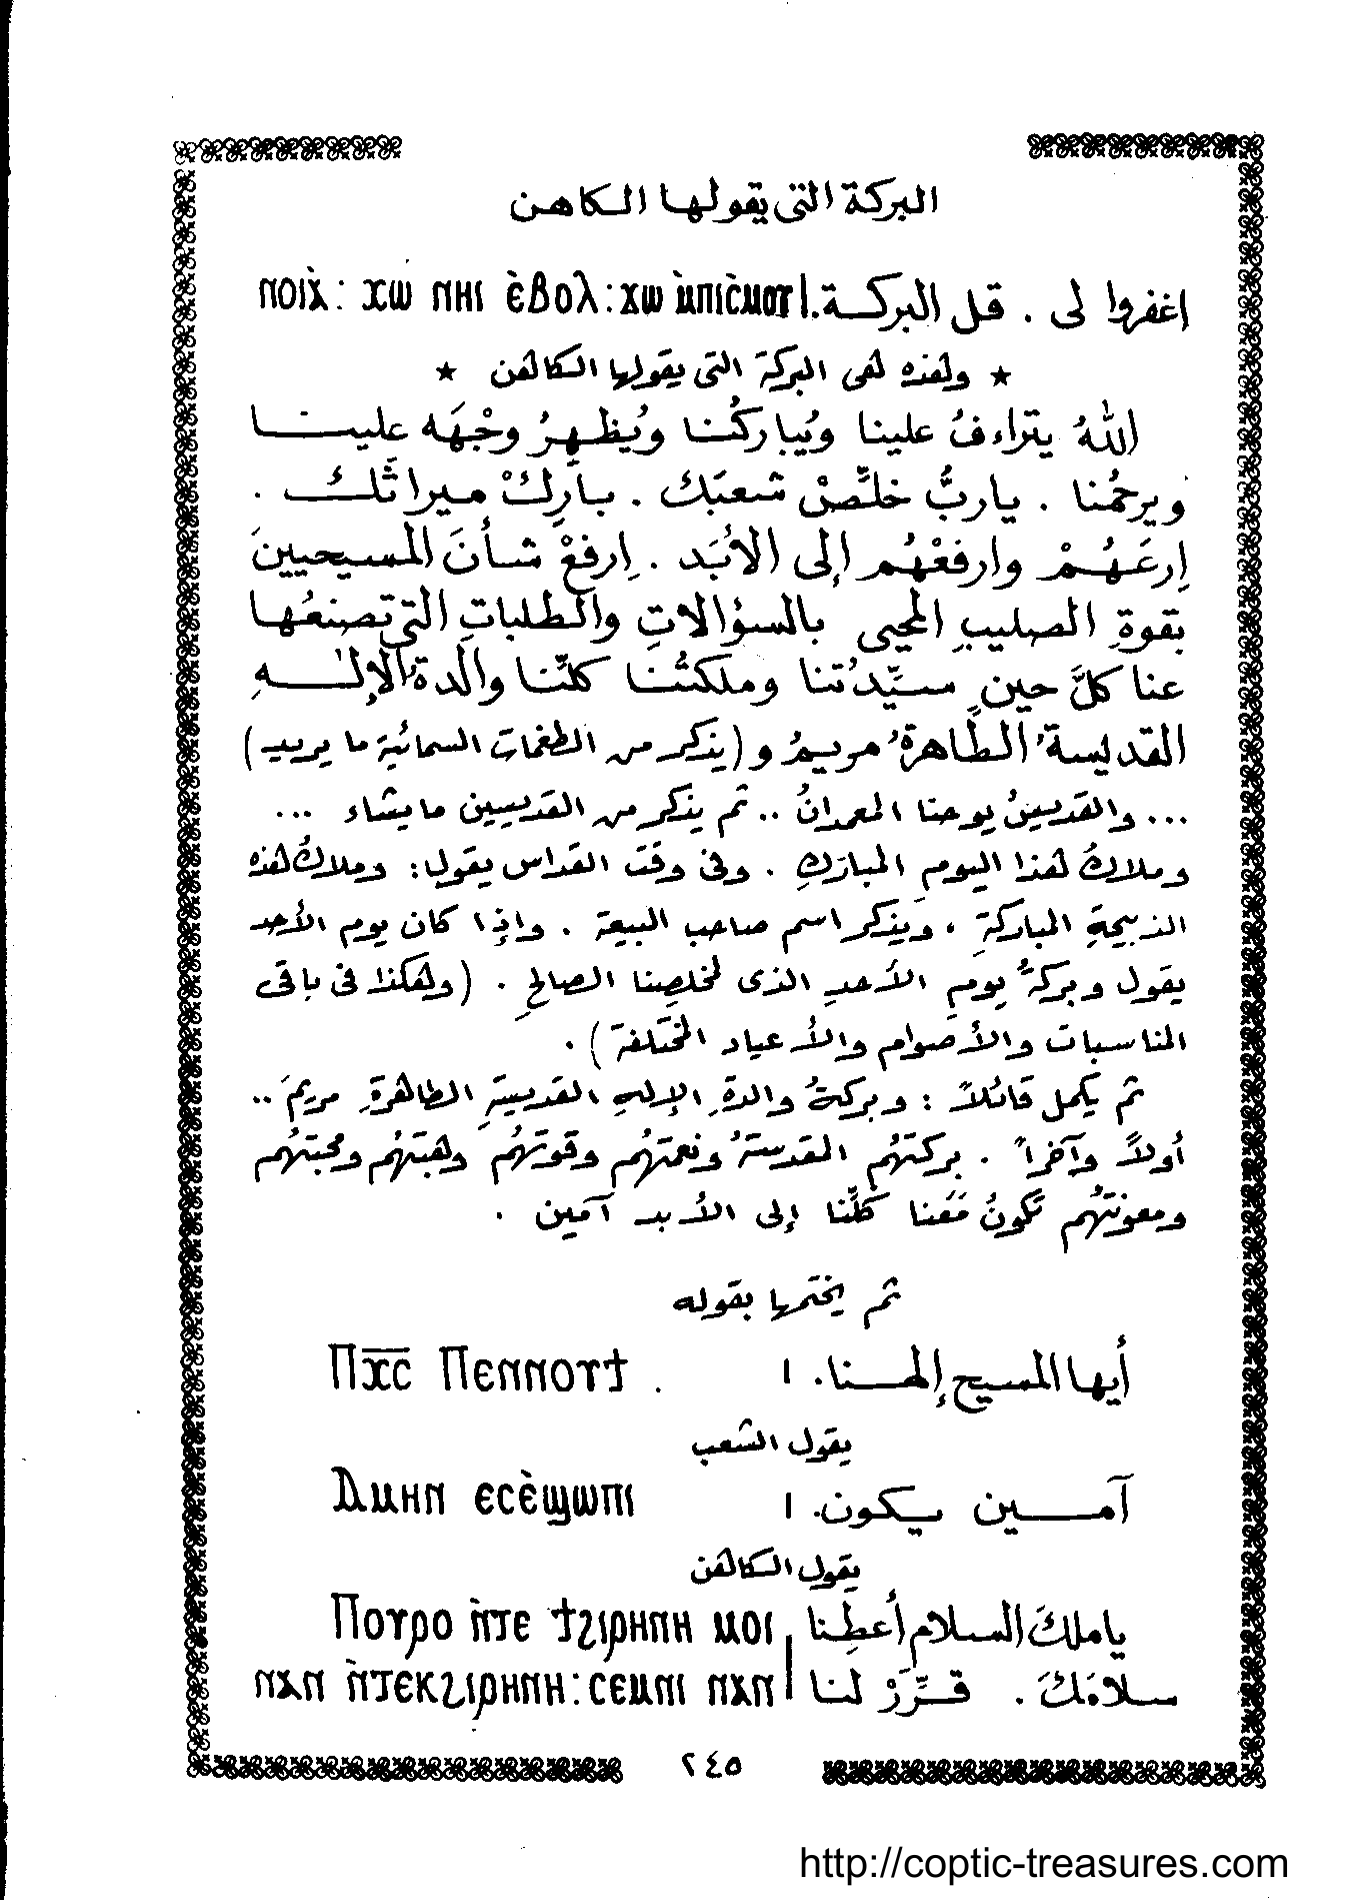 البركة التى يقولها الكاهن
اغفروا لى . قل البركة. | ⲛⲟⲓⲭ̀: ⲭⲱ ⲛⲏⲓ ⲉ̀ⲃⲟⲗ: ⲭⲱ ⲙ̀ⲡⲓⲥ̀ⲙⲟⲩ
★ وهذه هى البركة التى يقولها الكاهن ★
اللهُ يتراءفُ علينا ويُباركُنا ويُظهِرُ وجْهَه علينا
ويرحمُنا . ياربُّ خلِّصْ شعبَك . بارِكْ ميراثَك .
اِرعَهُمْ وارفعْهُم إلى الأبَد . اِرفعْ شأنَ المسيحيينَ
بقوةِ الصليبِ المحيى بالسؤالاتِ والطلباتِ التى تصنعُها
عنا كلَّ حينٍ سيِّدتُنا وملكتُنا كلِّنا والدةُ الإلٰهِ
القديسةُ الطاهرةُ مريمُ و (يذكر من الطغمات السمائية ما يريد)
... والقديسُ يوحنا المعمدانُ .. ثم يذكر من القديسين ما يشاء ...
وملاكُ هذا اليومِ المبارَكِ . وفى وقت القداس يقول: وملاكُ هذه
الذبيحةِ المباركةِ ، ويذكر اسم صاحب البيعة . وإذا كان يوم الأحد
يقول وبركةُ يومِ الأحدِ الذى لمخلصِنا الصالحِ . (وهكذا فى باقى
المناسبات والأصوام والأعياد المختلفة) .
ثم يكمل قائلاً : وبركةُ والدةِ الإلهِ القديسةِ الطاهرةِ مريمَ ..
أولاً وآخراً . بركتهُم المقدسةُ ونعمتهُم وقوتهُم وهبتهُم ومحبتهُم
ومعونتهُم تكونُ مَعَنا كلِّنا إلى الأبد آمين .
ثم يختمها بقوله
أيها المسيح إلهنا. | Ⲡⲭ̅ⲥ̅ Ⲡⲉⲛⲛⲟⲩϯ .
يقول الشعب
آمين يكون. | Ⲁⲙⲏⲛ ⲉⲥⲉ̀ϣⲱⲡⲓ
يقول الكاهن
ياملكَ السلام أعطِنا | Ⲡⲟⲩⲣⲟ ⲛ̀ⲧⲉ ϯϩⲓⲣⲏⲛⲏ ⲙⲟⲓ
سلامَكَ . قرِّرْ لنا | ⲛⲁⲛ ⲛ̀ⲧⲉⲕϩⲓⲣⲏⲛⲏ: ⲥⲉⲙⲛⲓ ⲛⲁⲛ
٢٤٥
http://coptic-treasures.com